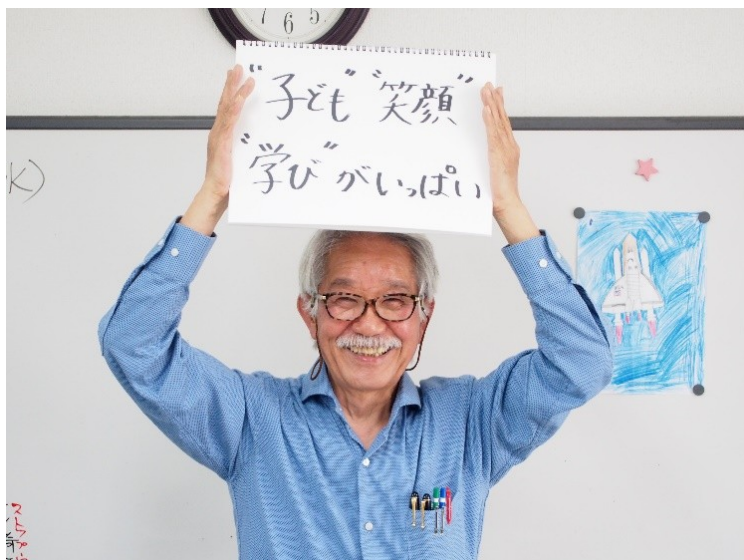 7 6 5
"子ども" "笑顔"
"学び"がいっぱい
K)